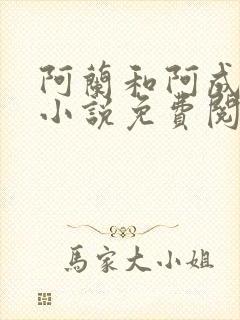 阿蘭和阿成
小說免費閱
馬家大小姐